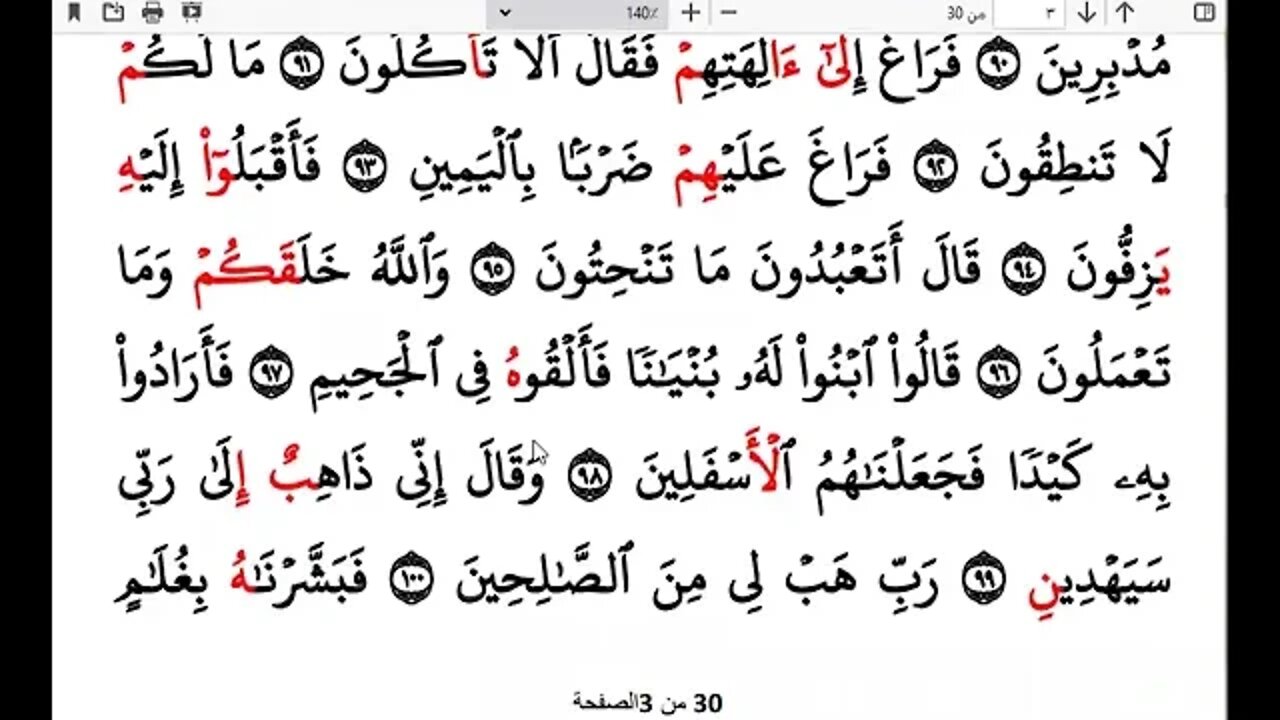 140٪ من 30 ٣
مُدْبِرِينَ ٩٠ فَرَاغَ إِلَىٰٓ ءَالِهَتِهِمْ فَقَالَ أَلَا تَأْكُلُونَ ٩١ مَا لَكُمْ
لَا تَنطِقُونَ ٩٢ فَرَاغَ عَلَيْهِمْ ضَرْبًۢا بِٱلْيَمِينِ ٩٣ فَأَقْبَلُوٓا۟ إِلَيْهِ
يَزِفُّونَ ٩٤ قَالَ أَتَعْبُدُونَ مَا تَنْحِتُونَ ٩٥ وَٱللَّهُ خَلَقَكُمْ وَمَا
تَعْمَلُونَ ٩٦ قَالُوا۟ ٱبْنُوا۟ لَهُۥ بُنْيَـٰنًا فَأَلْقُوهُ فِى ٱلْجَحِيمِ ٩٧ فَأَرَادُوا۟
بِهِۦ كَيْدًا فَجَعَلْنَـٰهُمُ ٱلْأَسْفَلِينَ ٩٨ وَقَالَ إِنِّى ذَاهِبٌ إِلَىٰ رَبِّى
سَيَهْدِينِ ٩٩ رَبِّ هَبْ لِى مِنَ ٱلصَّـٰلِحِينَ ١٠٠ فَبَشَّرْنَـٰهُ بِغُلَـٰمٍ
30 من 3الصفحة